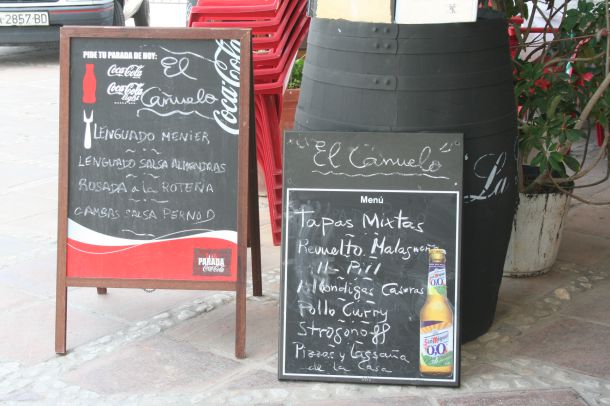 2852 BD
PIDE TU PARADA DE HOY:
Coca-Cola
Coca-Cola
light
El
Cañuelo
Coca-Cola
LENGUADO MENIER
LENGUADO SALSA ALMENDRAS
ROSADA a la ROTEÑA
GAMBAS SALSA PERNOD
PARADA
Coca-Cola
"El Cañuelo"
Menú
Tapas Mixtas
Revuelto Malagueño
Pill - Pill
Albondigas Caseras
Pollo Curry
Strogonoff
Pizzas y Lassaña
de la Casa
San Miguel
0,0
0,0
La